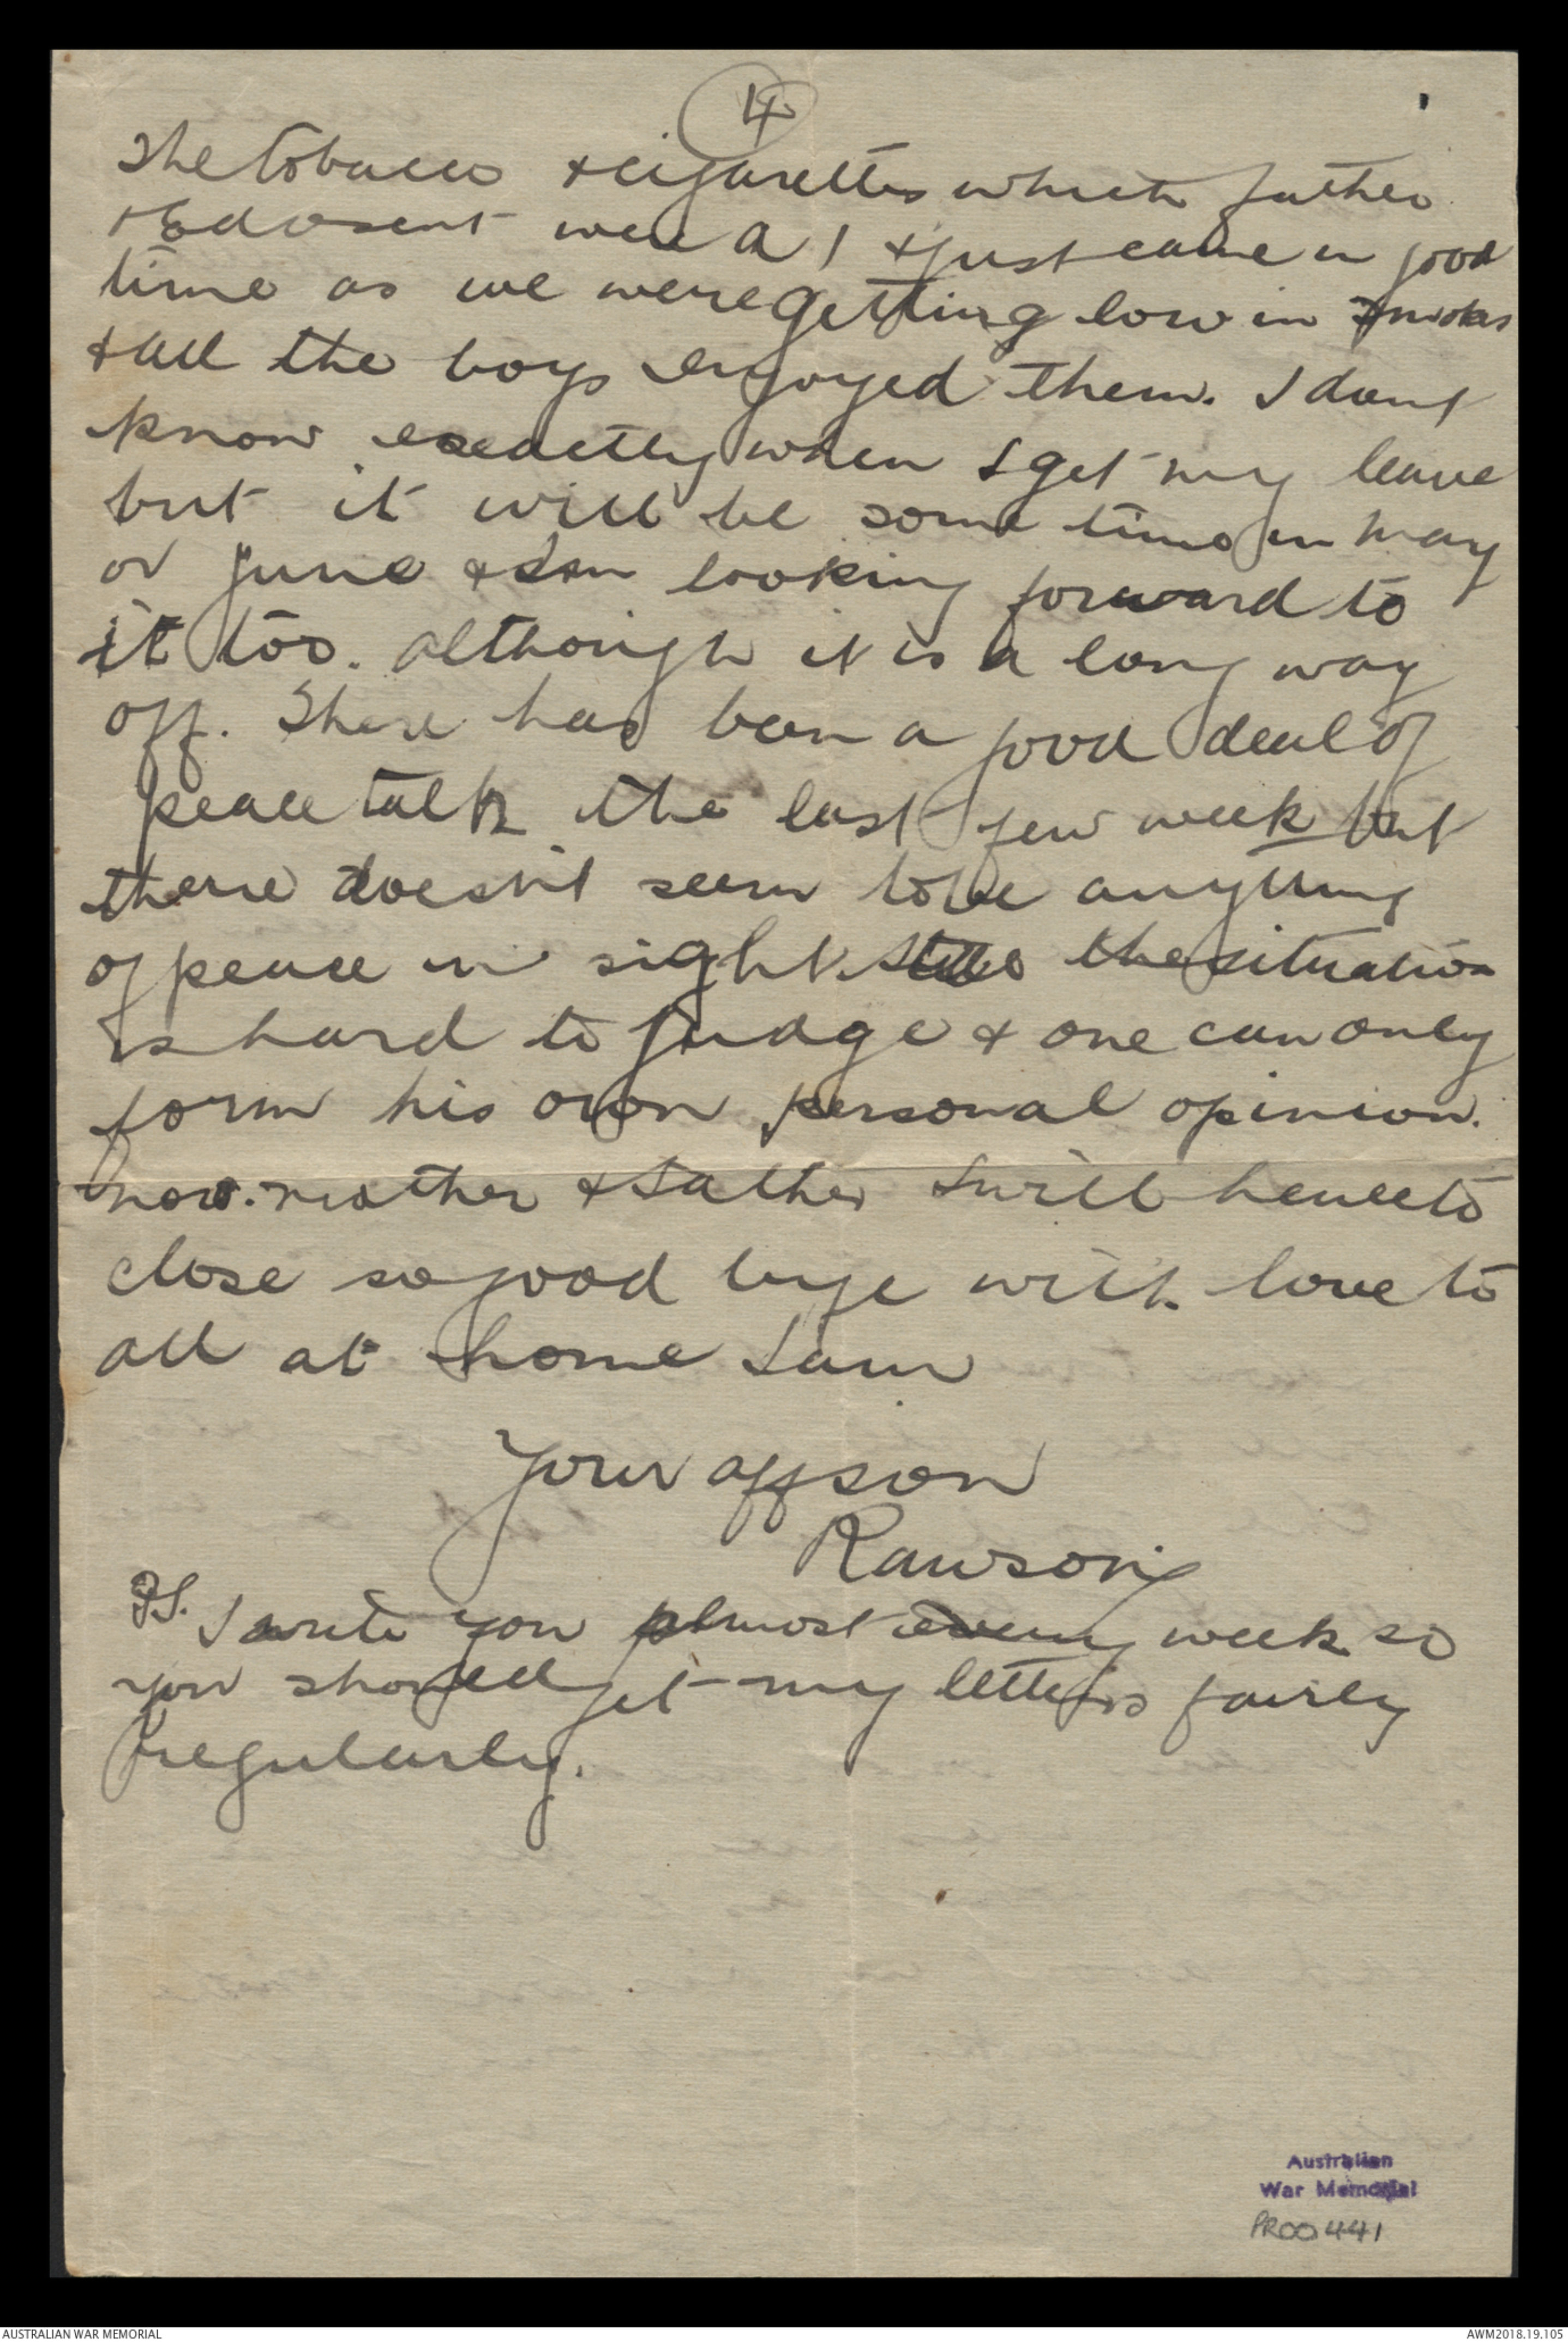 4
The tobacco & cigarettes which father
& Eda sent were A1 & just came in good
time as we were getting low in smokes
& all the boys enjoyed them. I dont
know exactly when I get my leave
but it will be some time in May
or June & Im looking forward to
it too. Although it is a long way
off. There has been a good deal of
peace talk the last few week but
there doesn't seem to be anything
of peace in sight. the situation
is hard to judge & one can only
form his own personal opinion.
now. mother & Father I will hence to
close so good bye with love to
all at home I am
Your aff son
Rawson
PS. I write you almost every week so
you should get my letters fairly
regularly.
Australian
War Memorial
PR00441
AUSTRALIAN WAR MEMORIAL
AWM2018.19.105